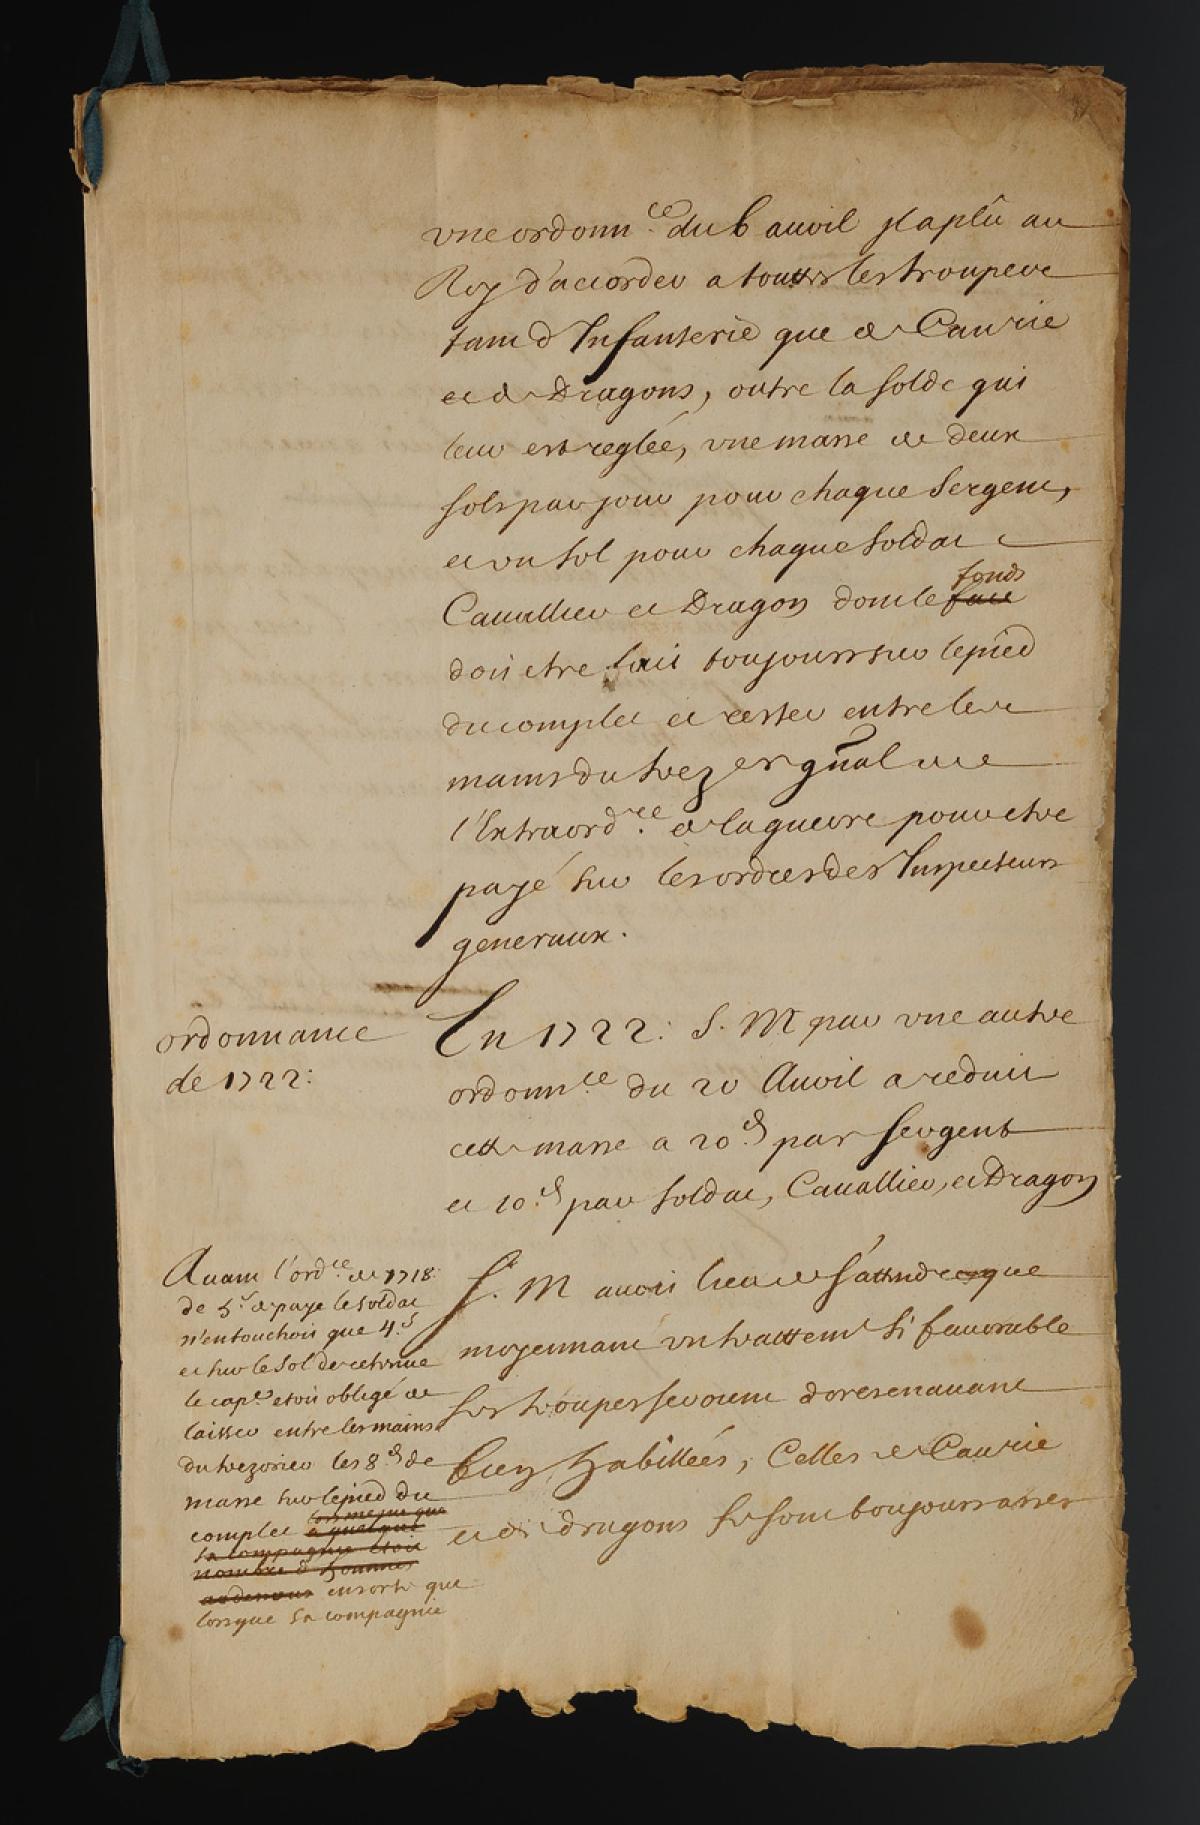 vne ordonn.ce du 6 auril jl a plû au
Roy d'accorder a touttes les trouppes
tant d'Infanterie que de Caurie
et de Dragons, outre la solde qui
leur est reglée, vne masse de deux
sols par jour pour chaque Sergent,
et vn sol pour chaque Soldat
Cauallier et Dragon dont le fonds
doit etre fait toujours sur le pied
du complet et rester entre les
mains du trez er gñal de
l'Extraord.re de la guerre pour etre
payé sur les ordres des Inspecteurs
generaux.
ordonnance
de 1722:
En 1722: S. M par vne autre
ordonn.ce du 20 Auril a reduit
cette masse a 20.d par sergent
et 10.d par soldat, Cauallier, et Dragon
S. M auoit lieu de s'attendre que
moyennant vn traittemt si fauorable
ses troupes seroient doresenauant
bien habillées, Celles de Caurie
et de dragons se sont toujours assés
Auant l'ord.ce de 1718
de 5.s de paye le soldat
n'en touchoit que 4.s
et sur le sol de retenue
le cap.e etoit obligé de
laisser entre les mains
du trezorier les 8.d de
masse sur le pied du
complet a quelque
sa compagnie etoit
nombre d'hommes
au dessous ensorte que
lorsque sa compagnie